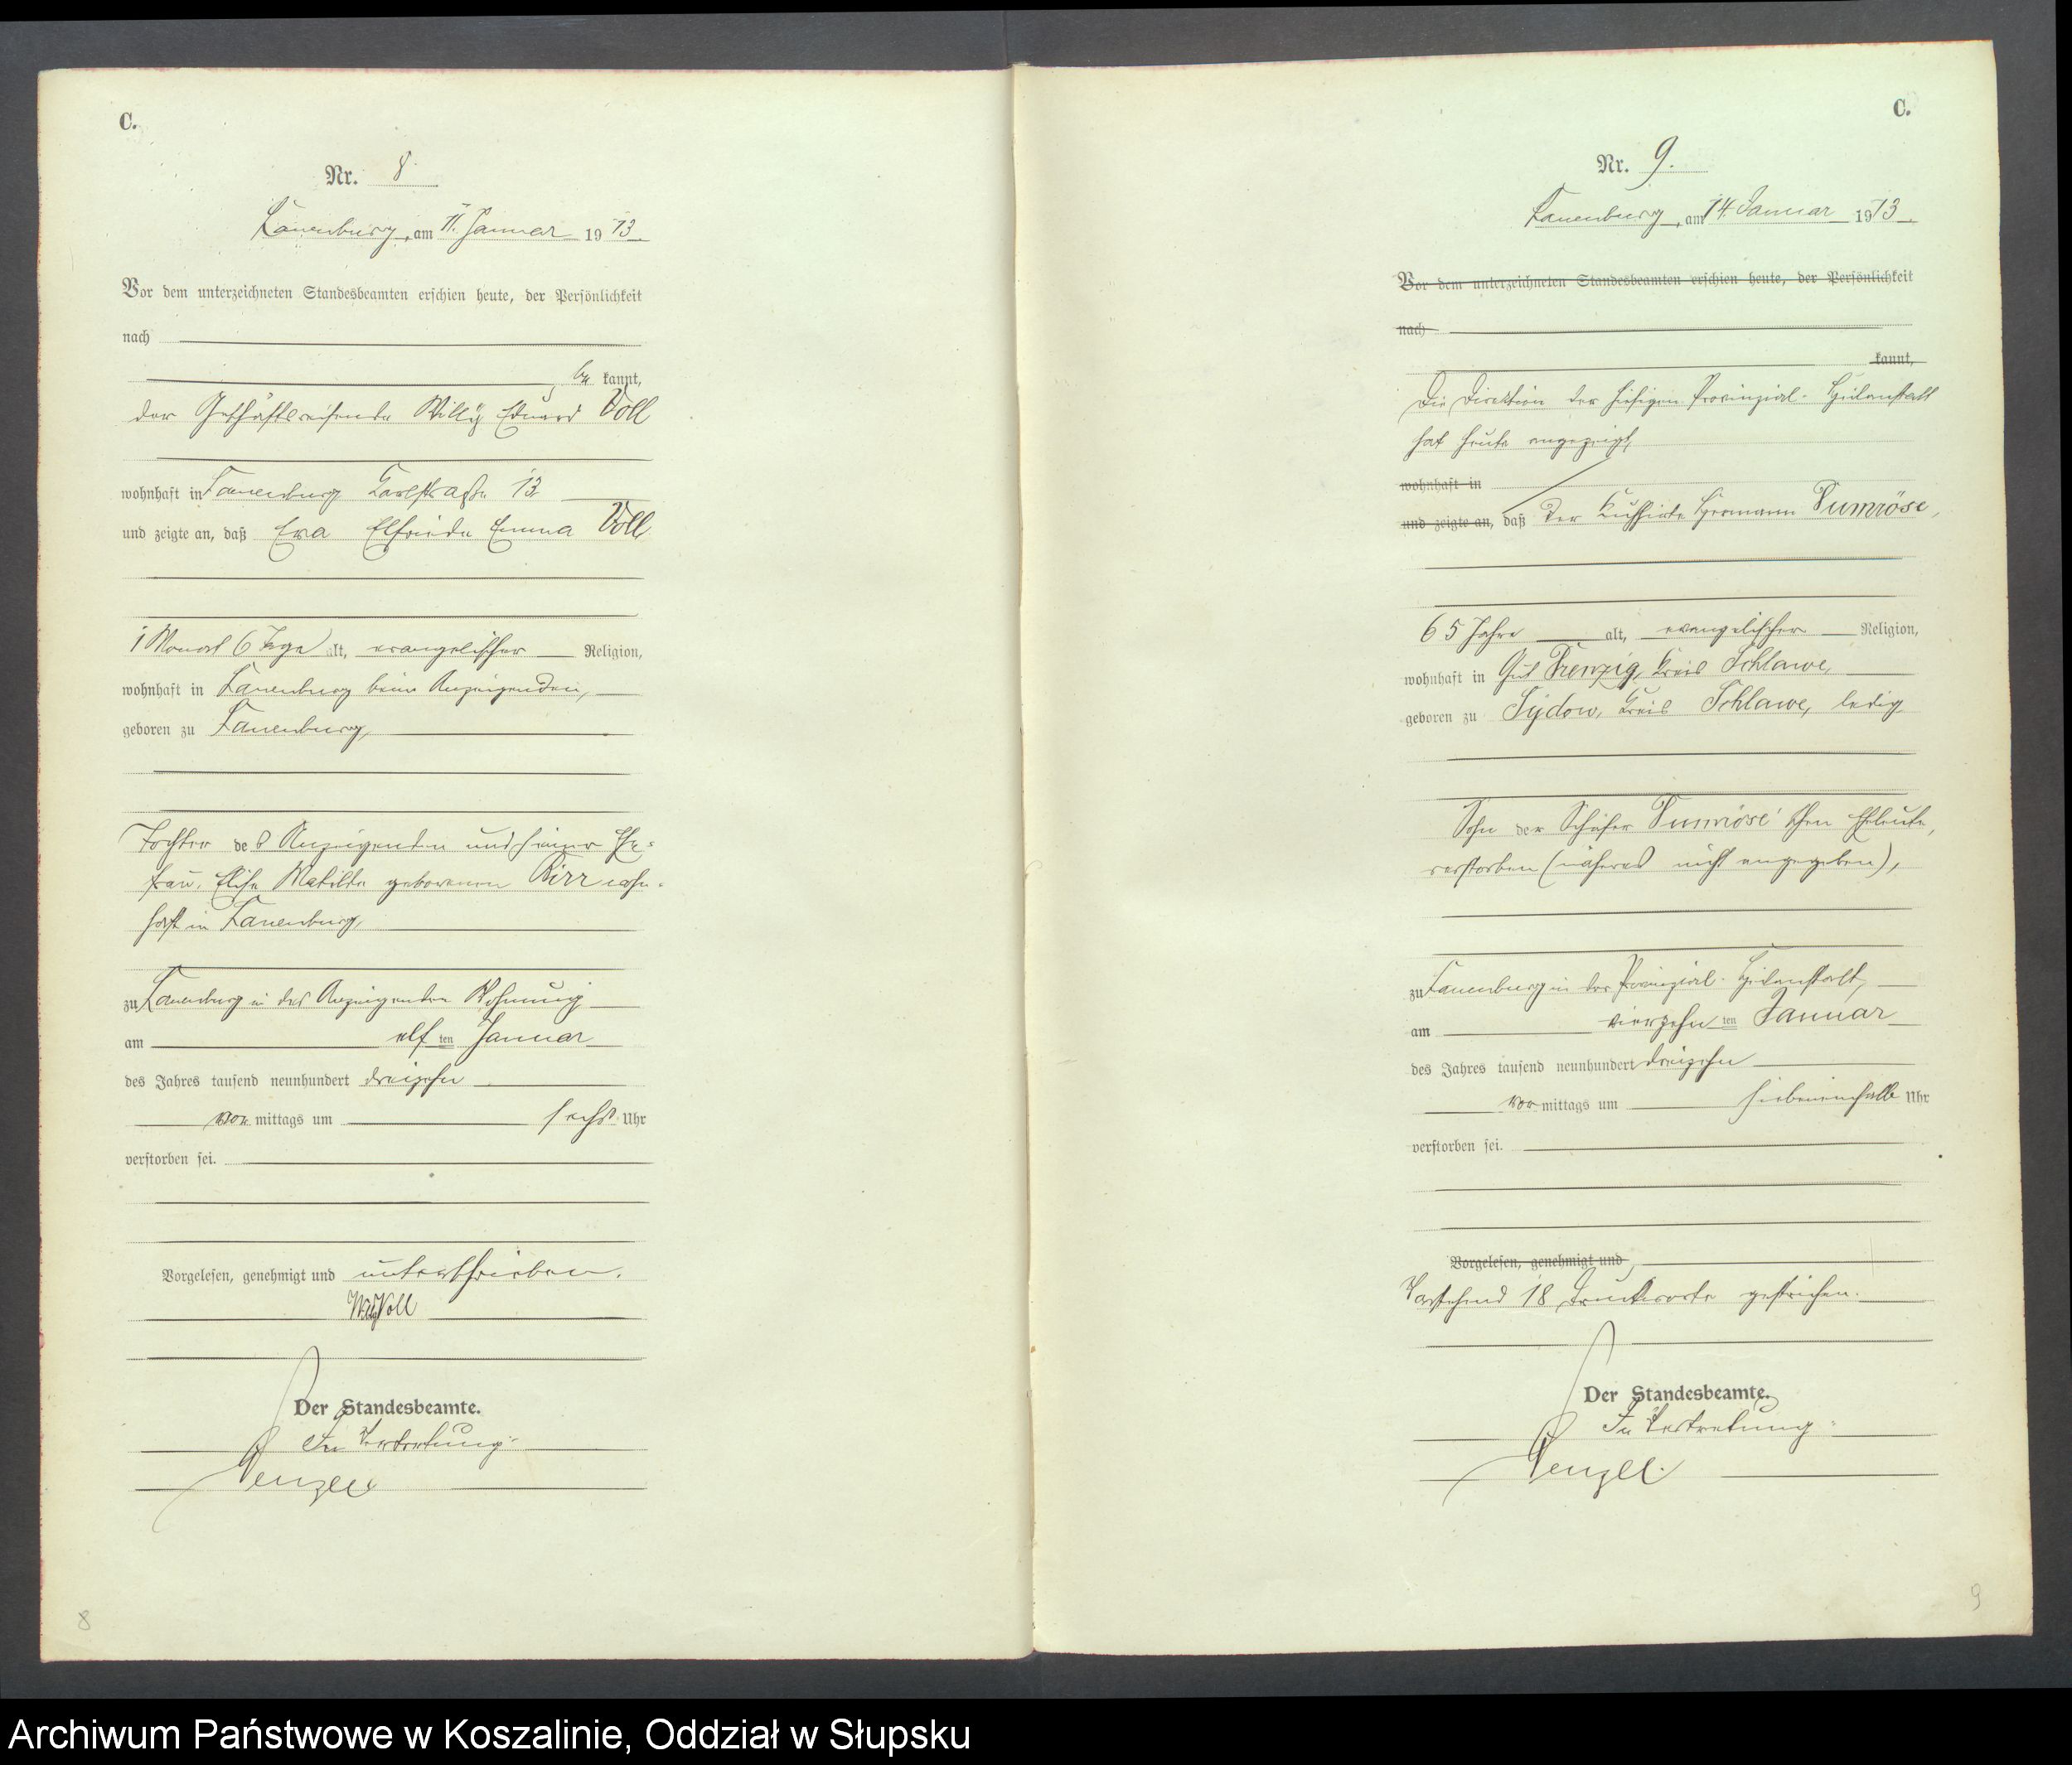 C.
Nr. 8
Lauenburg, am 11. Januar 1913.
Vor dem unterzeichneten Standesbeamten erschien heute, der Persönlichkeit
nach
be kannt,
der Geschäftsreisende Willy Eduard Voll
wohnhaft in Lauenburg Karlstraße 13
und zeigte an, daß Eva Elfriede Emma Voll
1 Monat 6 Tage alt, evangelischer Religion,
wohnhaft in Lauenburg beim Anzeigenden,
geboren zu Lauenburg,
Tochter des Anzeigenden und seiner Ehe-
frau, Elise Matilde geborenen Birr wohn-
haft in Lauenburg,
zu Lauenburg in des Anzeigenden Wohnung
am elf ten Januar
des Jahres tausend neunhundert dreizehn
vor mittags um sechs Uhr
verstorben sei.
Vorgelesen, genehmigt und unterschrieben.
Willy Voll
Der Standesbeamte.
In Vertretung
Wenzel
8
C.
Nr. 9.
Lauenburg, am 14. Januar 1913.
Vor dem unterzeichneten Standesbeamten erschien heute, der Persönlichkeit
nach
kannt,
Die Direktion der hiesigen Provinzial-Heilanstalt
hat heute angezeigt,
wohnhaft in
und zeigte an, daß der Hermann Pumröse,
65 Jahre alt, evangelischer Religion,
wohnhaft in Gut Trenzig, Kreis Schlawe,
geboren zu Sydow, Kreis Schlawe, ledig
Sohn der Schäfer Pumröse'schen Eheleute,
verstorben (näheres nicht angegeben),
zu Lauenburg in der Provinzial-Heilanstalt,
am vierzehn ten Januar
des Jahres tausend neunhundert dreizehn
vor mittags um siebeneinhalb Uhr
verstorben sei.
Vorgelesen, genehmigt und
Vorstehend 18 Druckworte gestrichen.
Der Standesbeamte.
In Vertretung
Wenzel.
9
Archiwum Państwowe w Koszalinie, Oddział w Słupsku